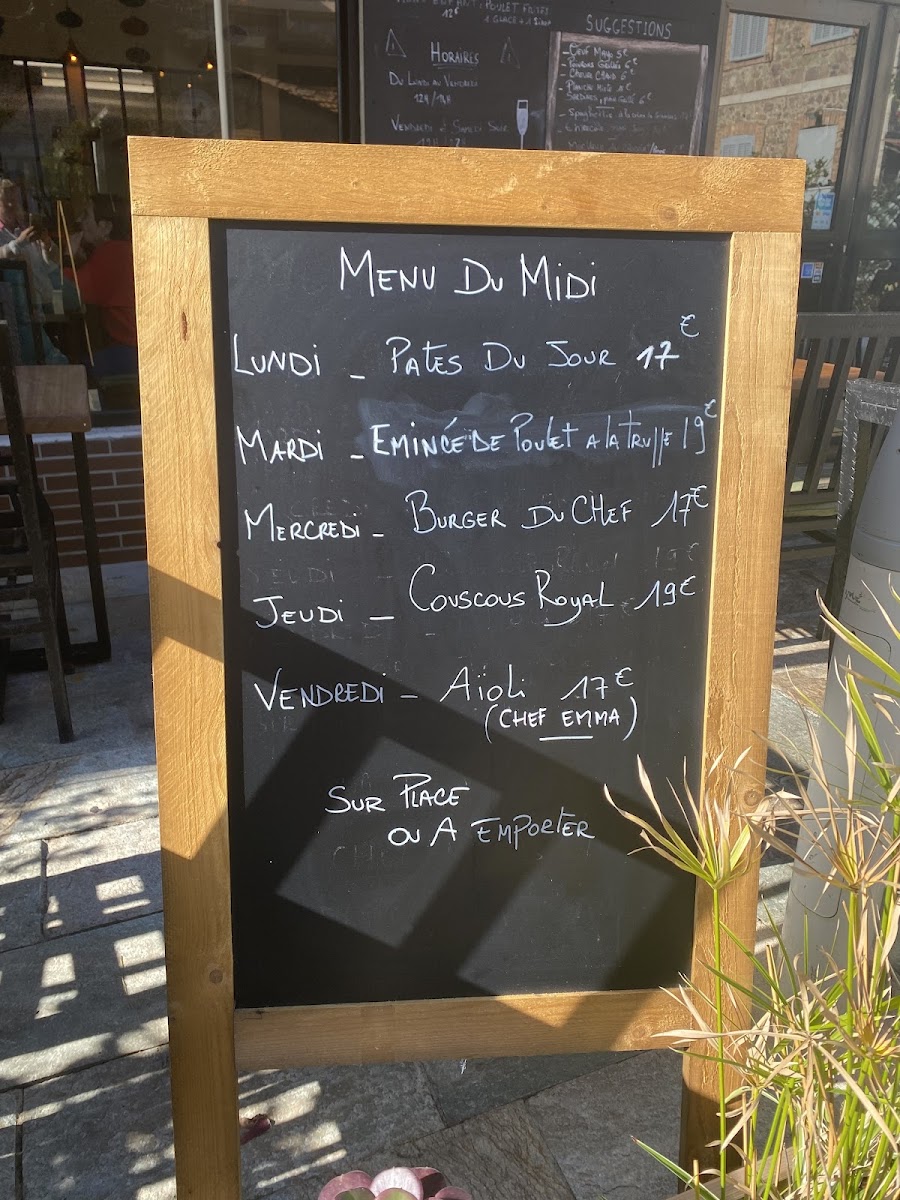 12€ 
HORAIRES
DU LUNDI AU VENDREDI
VENDREDI & SAMEDI SOIR
SUGGESTIONS
- OEUF MAYO 5€
MENU DU MIDI
LUNDI - PATES DU JOUR 17€
MARDI - EMINCÉ DE POULET A LA TRUFFE 19€
MERCREDI - BURGER DU CHEF 17€
JEUDI - COUSCOUS ROYAL 19€
VENDREDI - AÏOLI 17€
(CHEF EMMA)
SUR PLACE
OU A EMPORTER